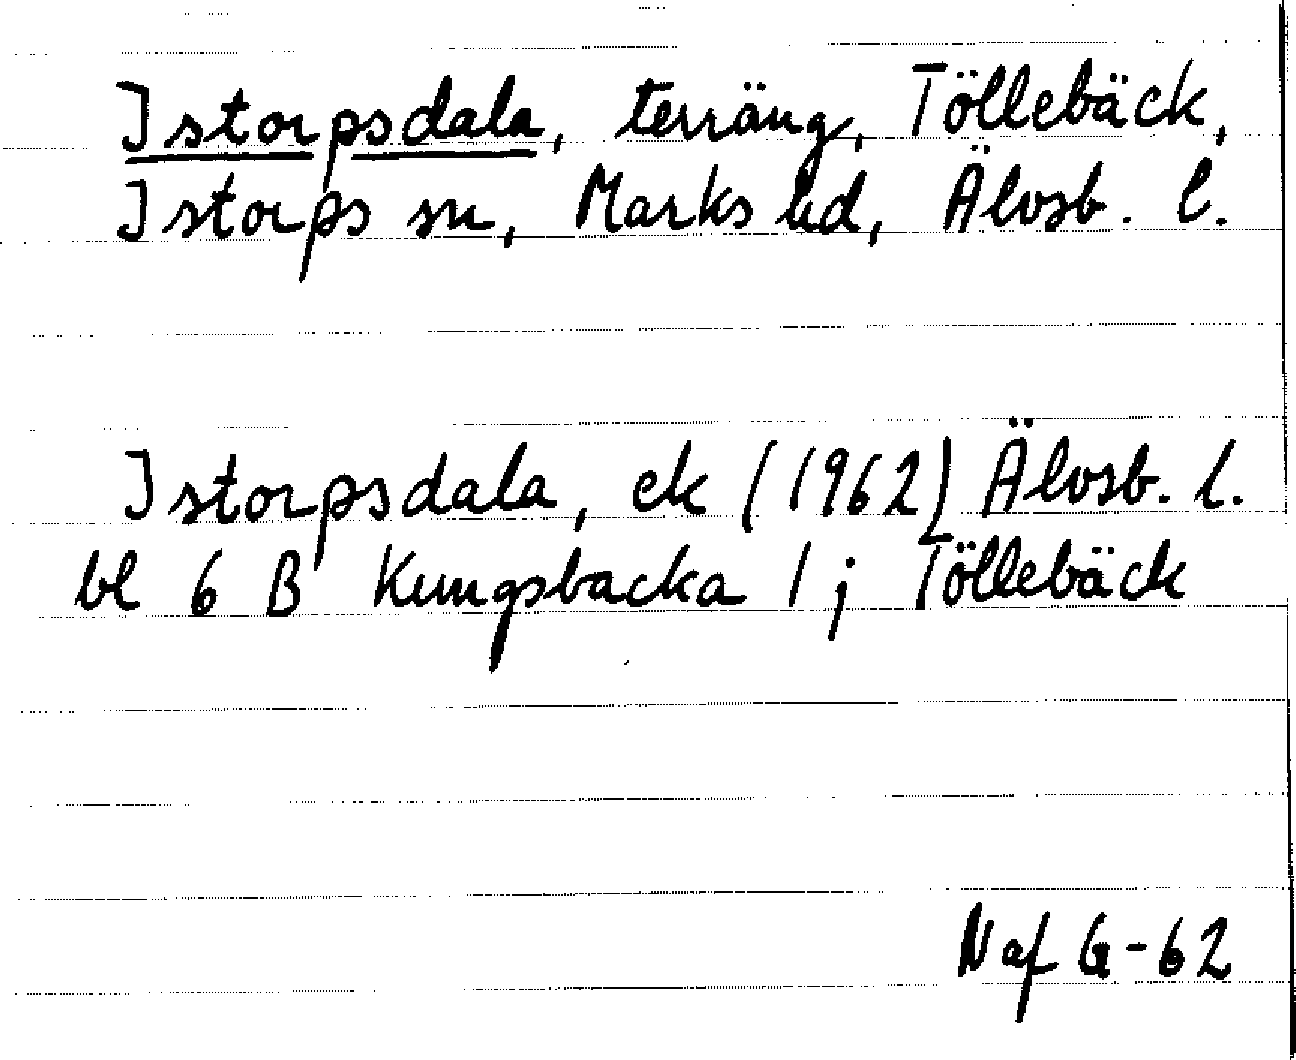 Istorpsdala, terräng, Töllebäck,
Istorps sn, Marks hd, Älvsb. l.
Istorpsdala, ek (1962) Älvsb. l.
bl 6 B Kungsbacka 1; Töllebäck
Naf G-62